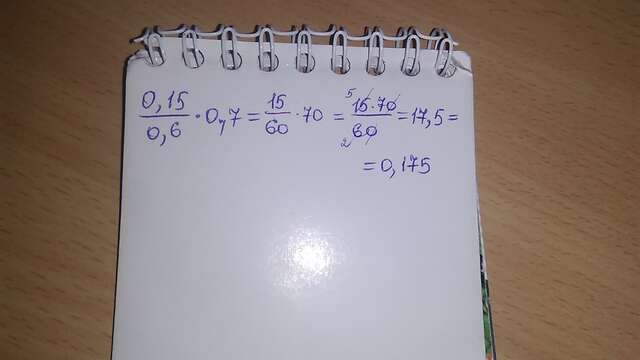 0,15/0,6 · 0,7 = 15/60 · 70 = 5 15·70/60 2 = 17,5 =
= 0,175